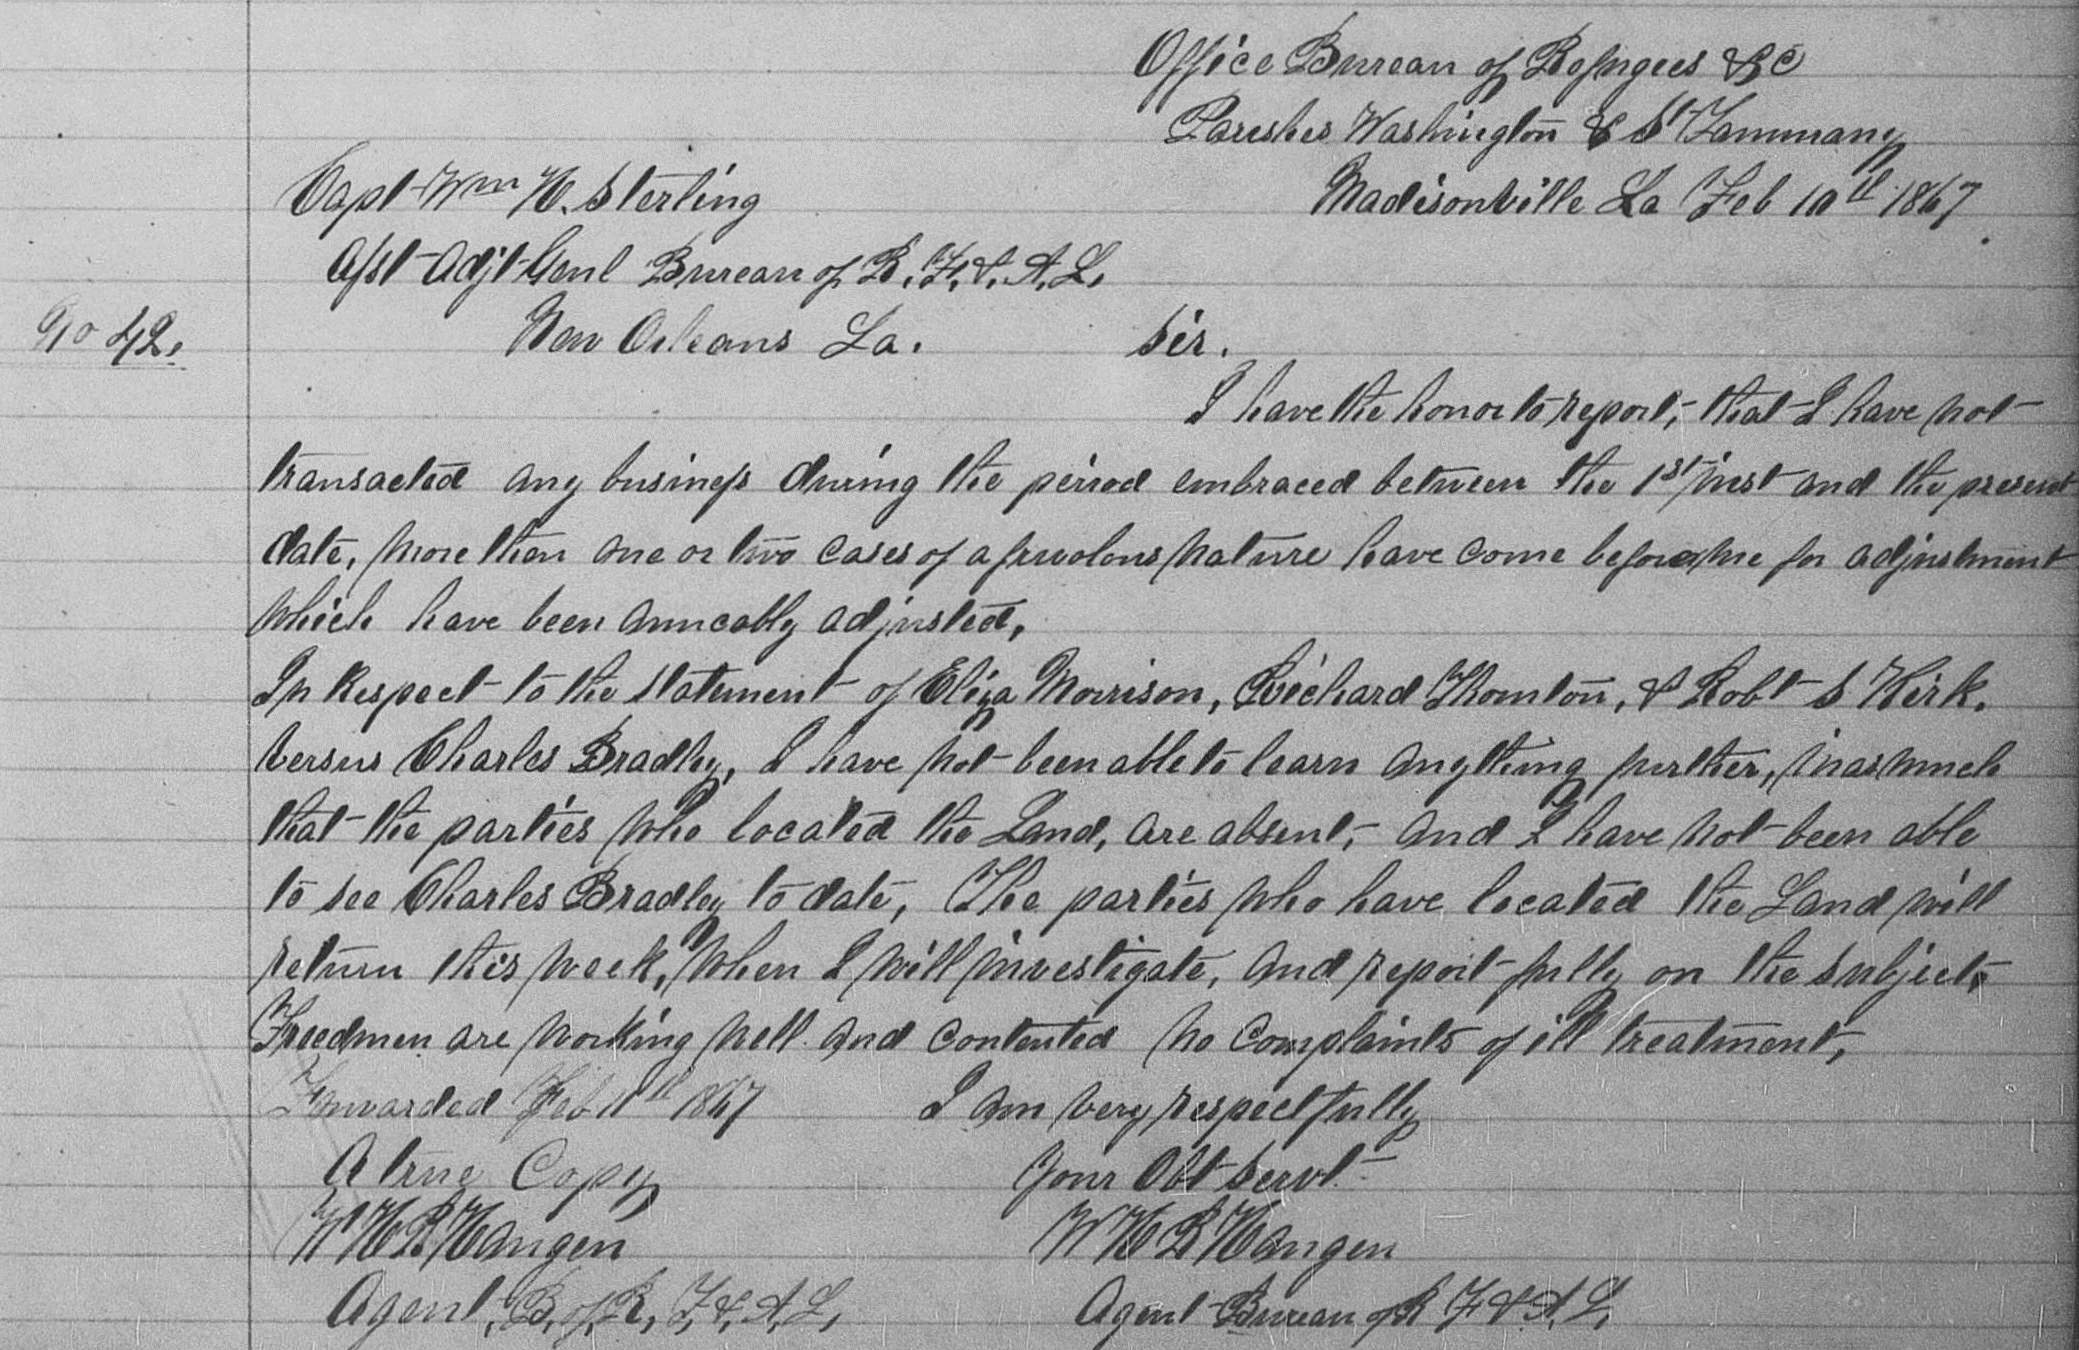 Office Bureau of Refugees &C
Parishes Washington & St Tammany
Madisonville La Feb 10th 1867
Capt Wm H. Sterling
Asst Adjt Genl Bureau of R. F. & A. L.
No 42.
New Orleans La. Sir.
I have the honor to report, that I have not
transacted any business during the period embraced between the 1st inst and the present
date, more then one or two cases of a frivolous nature have come before me for adjustment
which have been amicably adjusted,
In Respect to the statement of Eliza Morrison, Richard Thomton, & Robt S Kirk.
versus Charles Bradley, I have not been able to learn anything further, inasmuch
that the parties who located the Land, are absent, and I have not been able
to see Charles Bradley to date, The parties who have located the Land will
return this week, when I will investigate, and report fully on the subject,
Freedmen are working well and contented no complaints of ill treatment,
Forwarded Feb 11th 1867 I am very respectfully
A true Copy Your Obt Servt
W H R Hangen W H R Hangen
Agent, B. of R, F, &, A, L, Agent Bureau of R F & A. L,